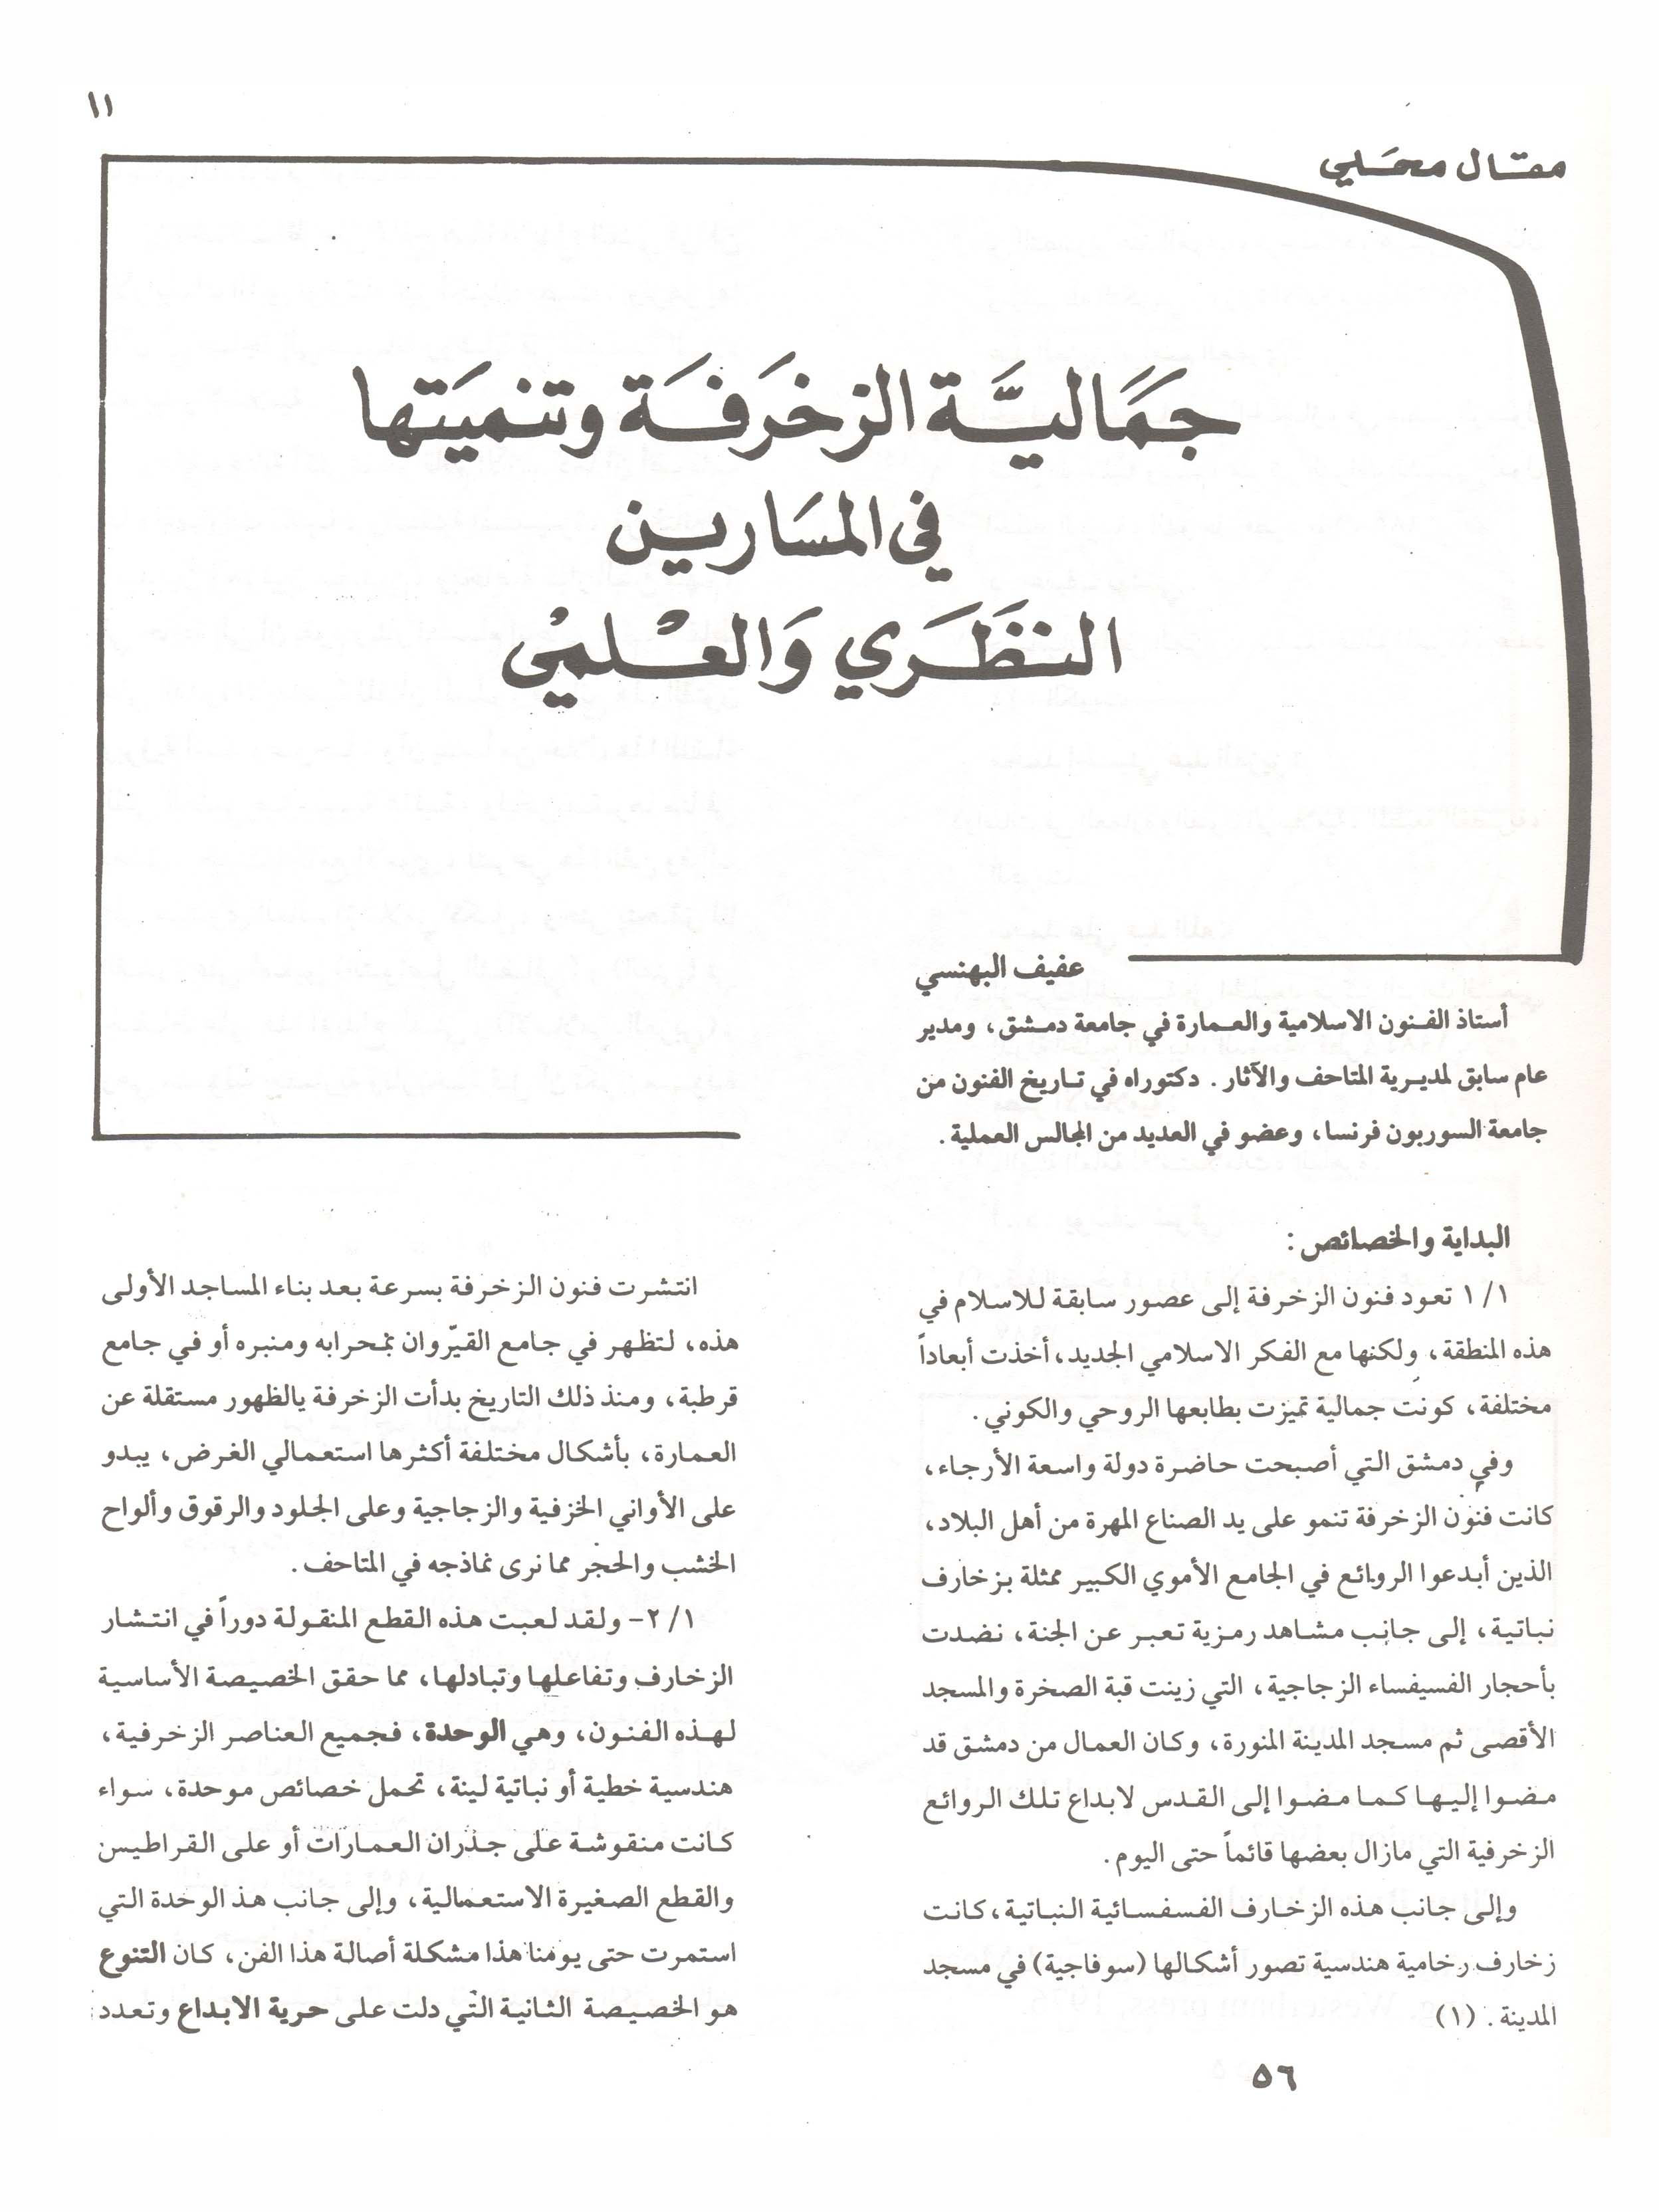 ١١
مقال محلي
جمالية الزخرفة وتنميتها
في المسارين
النظري والعلمي
عفيف البهنسي
أستاذ الفنون الاسلامية والعمارة في جامعة دمشق، ومدير
عام سابق لمديرية المتاحف والآثار. دكتوراه في تاريخ الفنون من
جامعة السوربون فرنسا، وعضو في العديد من المجالس العملية.
البداية والخصائص:
١/١ تعود فنون الزخرفة إلى عصور سابقة للاسلام في
هذه المنطقة، ولكنها مع الفكر الاسلامي الجديد، أخذت أبعاداً
مختلفة، كونت جمالية تميزت بطابعها الروحي والكوني.
وفي دمشق التي أصبحت حاضرة دولة واسعة الأرجاء،
كانت فنون الزخرفة تنمو على يد الصناع المهرة من أهل البلاد،
الذين أبدعوا الروائع في الجامع الأموي الكبير ممثلة بزخارف
نباتية، إلى جانب مشاهد رمزية تعبر عن الجنة، نضدت
بأحجار الفسيفساء الزجاجية، التي زينت قبة الصخرة والمسجد
الأقصى ثم مسجد المدينة المنورة، وكان العمال من دمشق قد
مضوا إليها كما مضوا إلى القدس لابداع تلك الروائع
الزخرفية التي مازال بعضها قائماً حتى اليوم.
وإلى جانب هذه الزخارف الفسفسائية النباتية، كانت
زخارف رخامية هندسية تصور أشكالها (سوفاجية) في مسجد
المدينة. (١)
انتشرت فنون الزخرفة بسرعة بعد بناء المساجد الأولى
هذه، لتظهر في جامع القيّروان بمحرابه ومنبره أو في جامع
قرطبة، ومنذ ذلك التاريخ بدأت الزخرفة يالظهور مستقلة عن
العمارة، بأشكال مختلفة أكثرها استعمالي الغرض، يبدو
على الأواني الخزفية والزجاجية وعلى الجلود والرقوق وألواح
الخشب والحجر مما نرى نماذجه في المتاحف.
٢/١- ولقد لعبت هذه القطع المنقولة دوراً في انتشار
الزخارف وتفاعلها وتبادلها، مما حقق الخصيصة الأساسية
لهذه الفنون، وهي الوحدة، فجميع العناصر الزخرفية،
هندسية خطية أو نباتية لينة، تحمل خصائص موحدة، سواء
كانت منقوشة على جذران العمارات أو على القراطيس
والقطع الصغيرة الاستعمالية، وإلى جانب هذ الوحدة التي
استمرت حتى يومنا هذا مشكلة أصالة هذا الفن، كان التنوع
هو الخصيصة الثانية التي دلت على حرية الابداع وتعدد
٥٦